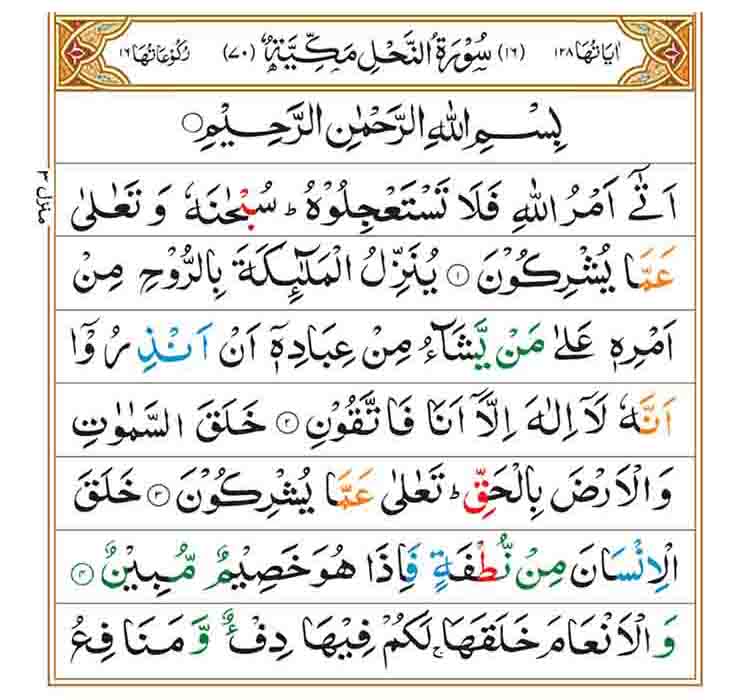 اٰیَاتُهَا ۱۲۸ (۱۶) سُوْرَةُ النَّحْلِ مَكِّیَّةٌ (۷۰) رُكُوْعَاتُهَا ۱۶
بِسْمِ اللهِ الرَّحْمٰنِ الرَّحِیْمِ
اَتٰۤی اَمْرُ اللهِ فَلَا تَسْتَعْجِلُوْهُ ؕ سُبْحٰنَهٗ وَ تَعٰلٰی
عَمَّا یُشْرِكُوْنَ ۱ یُنَزِّلُ الْمَلٰٓىِٕكَةَ بِالرُّوْحِ مِنْ
اَمْرِهٖ عَلٰی مَنْ یَّشَآءُ مِنْ عِبَادِهٖۤ اَنْ اَنْذِرُوْۤا
اَنَّهٗ لَاۤ اِلٰهَ اِلَّاۤ اَنَا فَاتَّقُوْنِ ۲ خَلَقَ السَّمٰوٰتِ
وَالْاَرْضَ بِالْحَقِّ ؕ تَعٰلٰی عَمَّا یُشْرِكُوْنَ ۳ خَلَقَ
الْاِنْسَانَ مِنْ نُّطْفَةٍ فَاِذَا هُوَ خَصِیْمٌ مُّبِیْنٌ ۴
وَالْاَنْعَامَ خَلَقَهَا ۚ لَكُمْ فِیْهَا دِفْءٌ وَّ مَنَافِعُ
منزل ۳